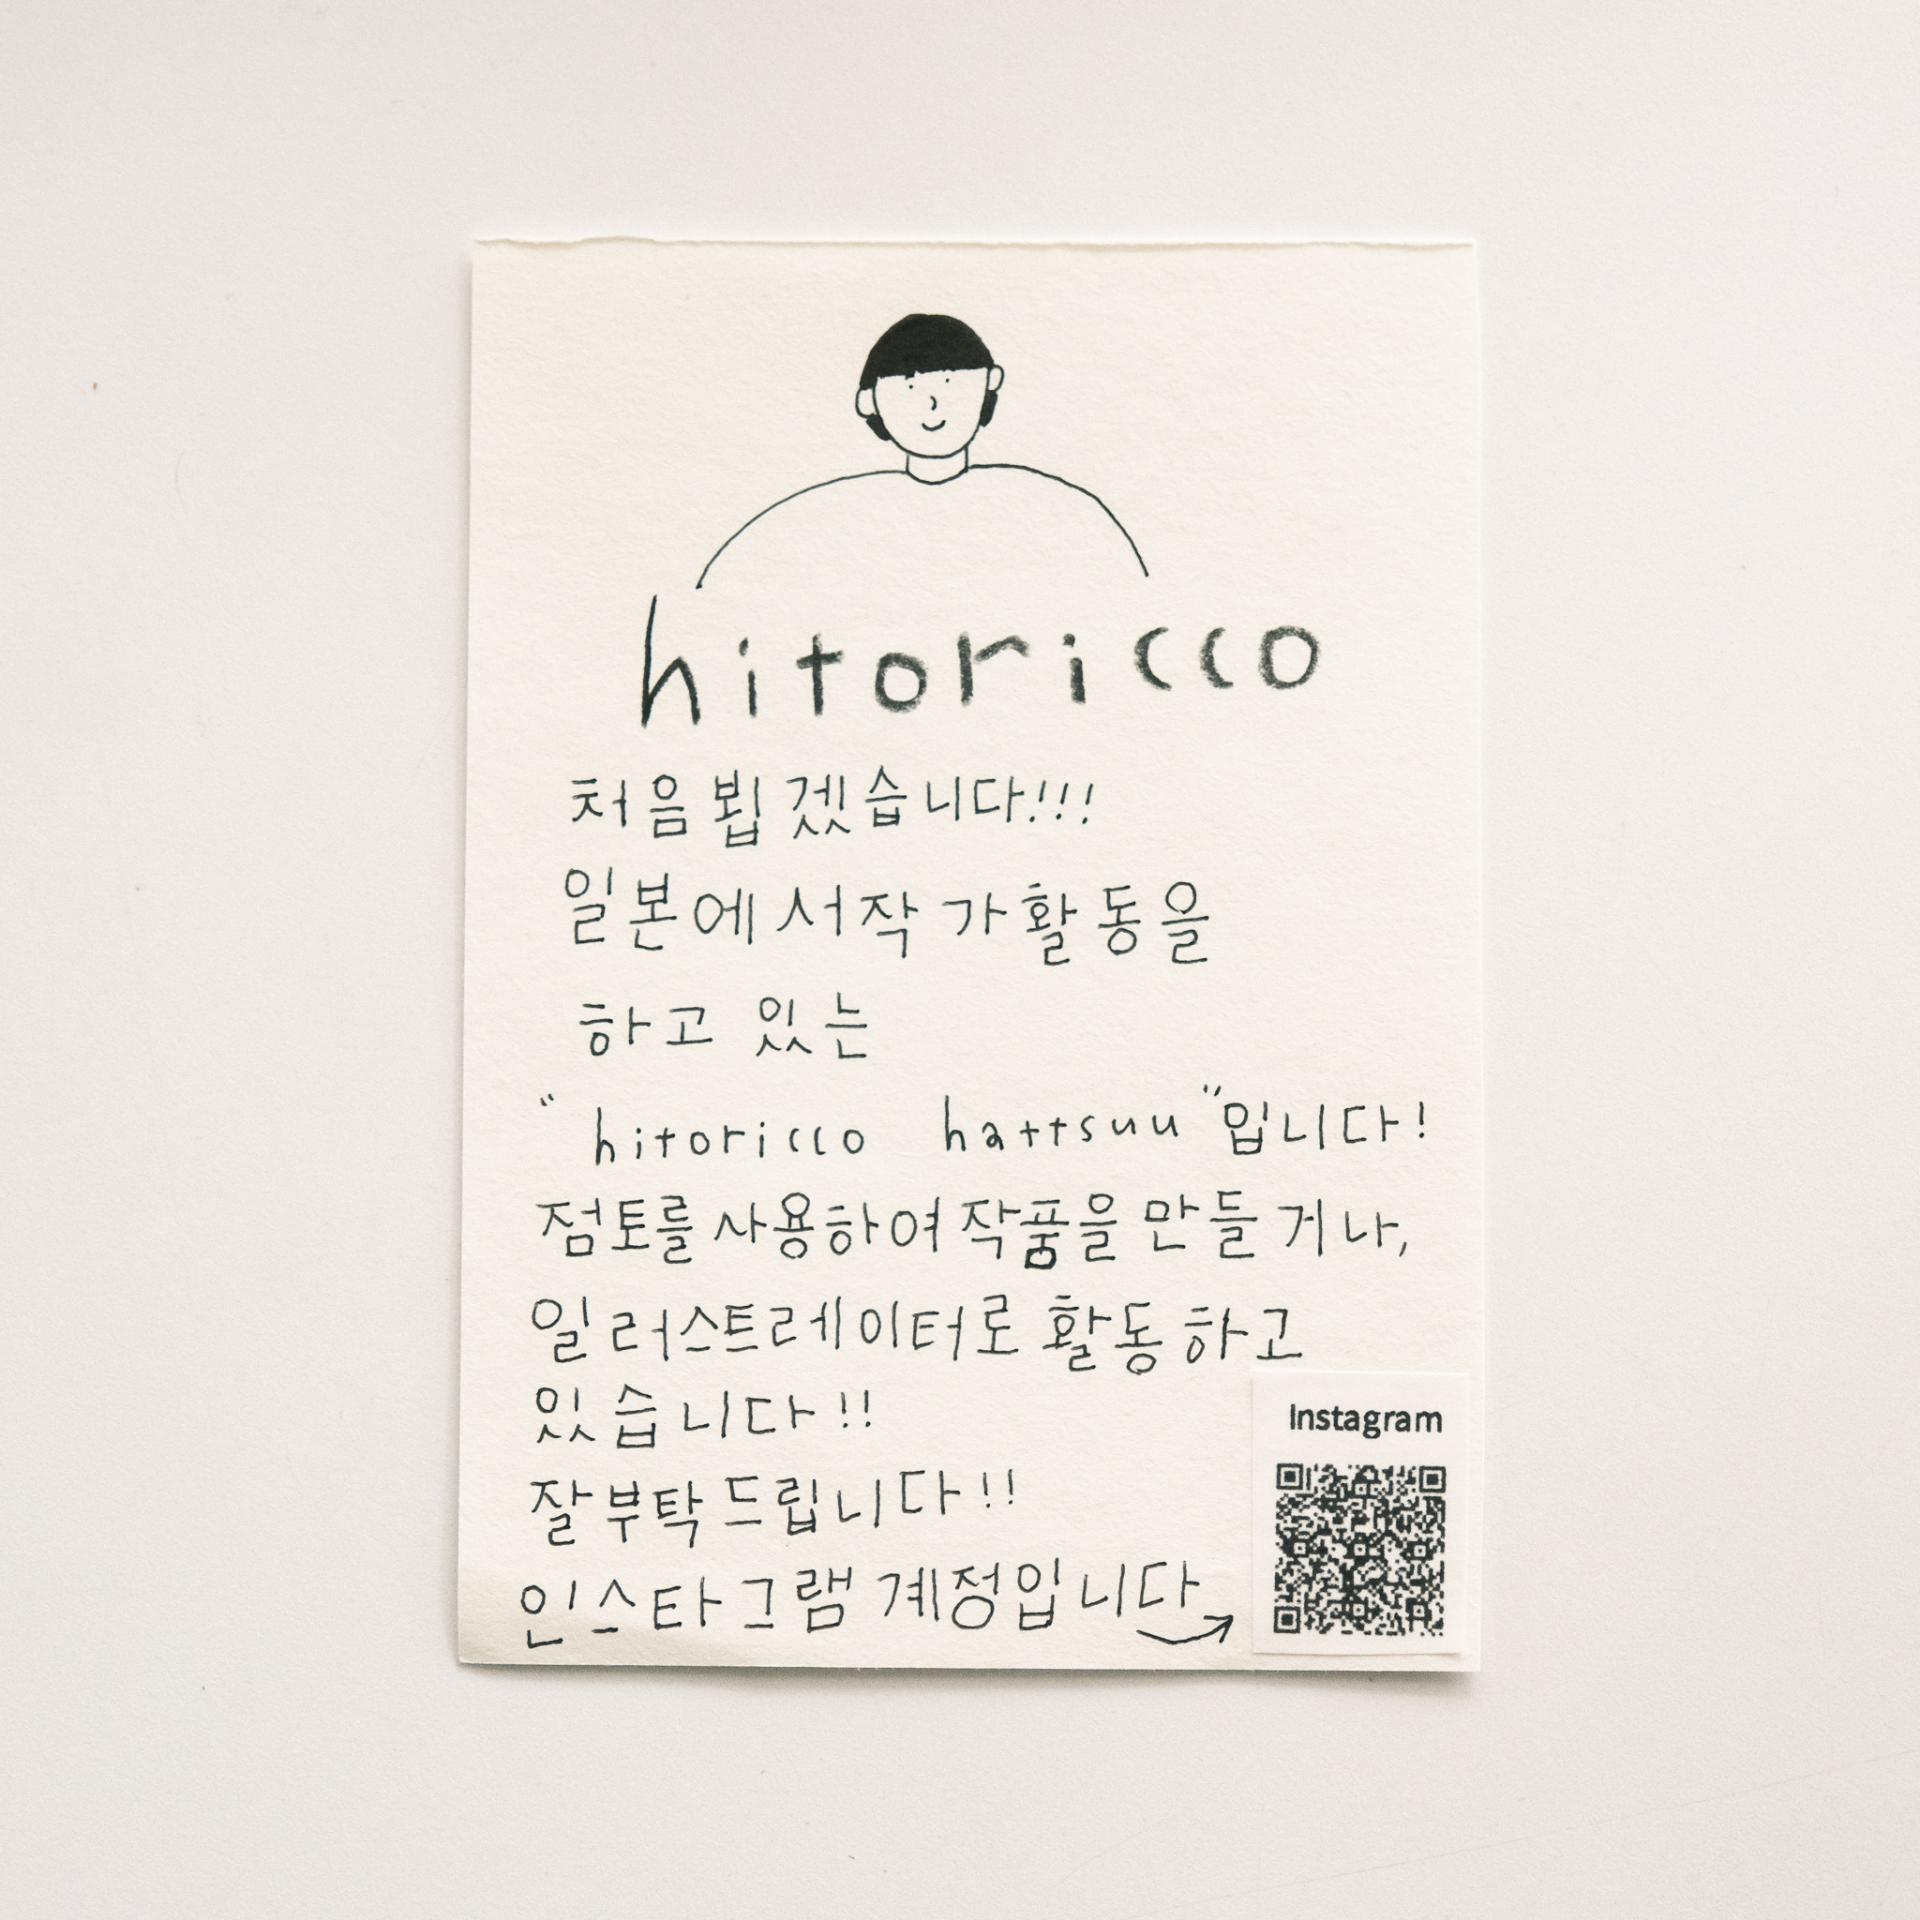 hitoricco
처음 뵙겠습니다!!!
일본에서 작가 활동을
하고 있는
"hitoricco hattsuu"입니다!
점토를 사용하여 작품을 만들거나,
일러스트레이터로 활동하고
있습니다!!
잘 부탁드립니다!!
인스타그램 계정입니다
Instagram